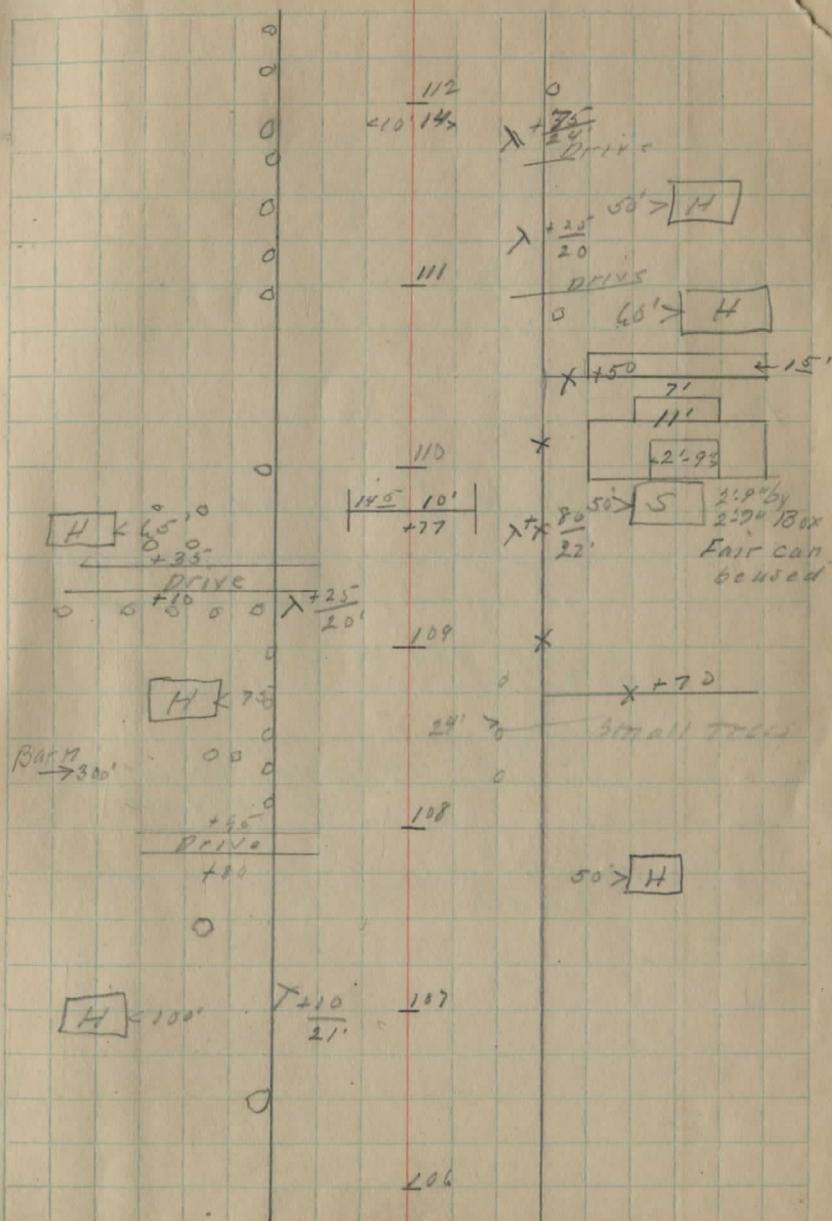 112
<10' 14>
+75
24'
Drive
50'> H
λ +25
20
111
Drive
60'> H
+50 ←15'
7'
11'
110
2'-9"
145 10'
+77
50'> S
2'-9" by
2'-9" Box
Fair can
be used
H <65'
λ+ 80
22'
+35
Drive
+10
λ +25
20'
109
H <75
+70
24'> Small Trees
Barn
→300'
108
+95
Drive
+80
50'> H
107
H <100'
+10
21'
106